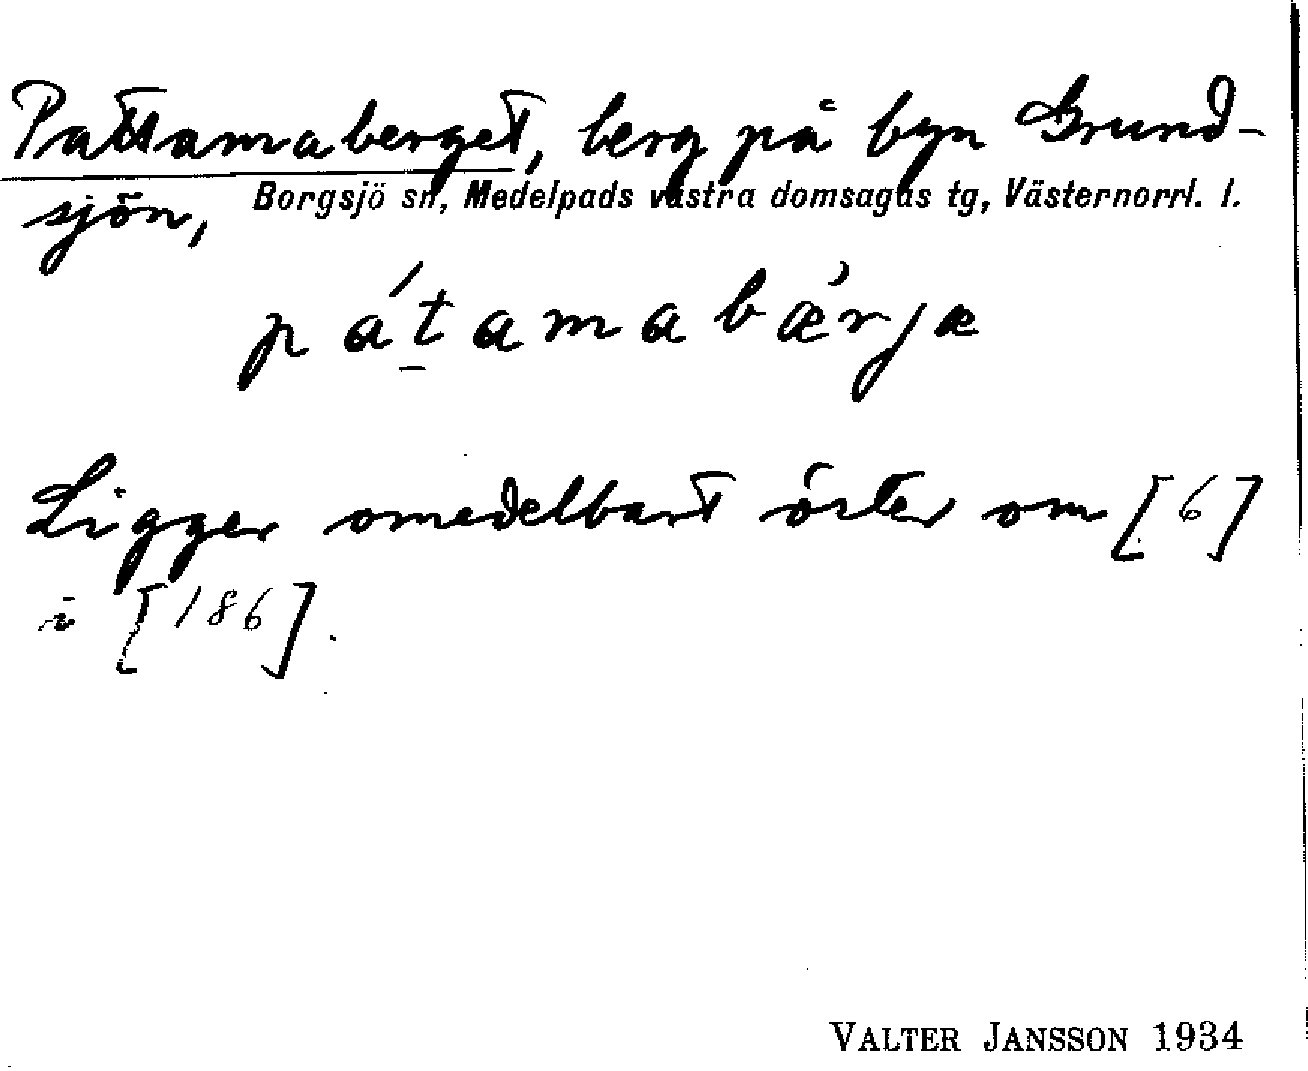 Pattamaberget, berg på byn Grund-
sjön, Borgsjö sn, Medelpads västra domsagas tg, Västernorrl. l.
pát̠amabǽrjæ
Ligger omedelbart öster om [6]
i [186].
VALTER JANSSON 1934